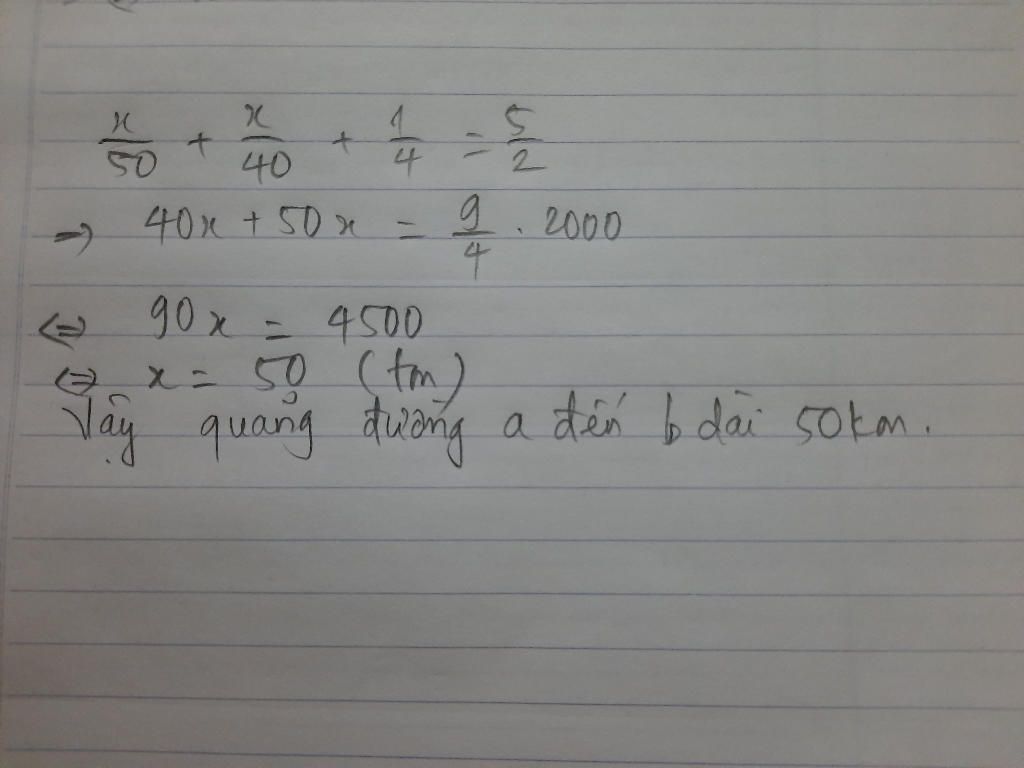 x/50 + x/40 + 1/4 = 5/2
=> 40x + 50x = 9/4 . 2000
<=> 90x = 4500
<=> x = 50 (tm)
Vậy quảng đường a đến b dài 50km.